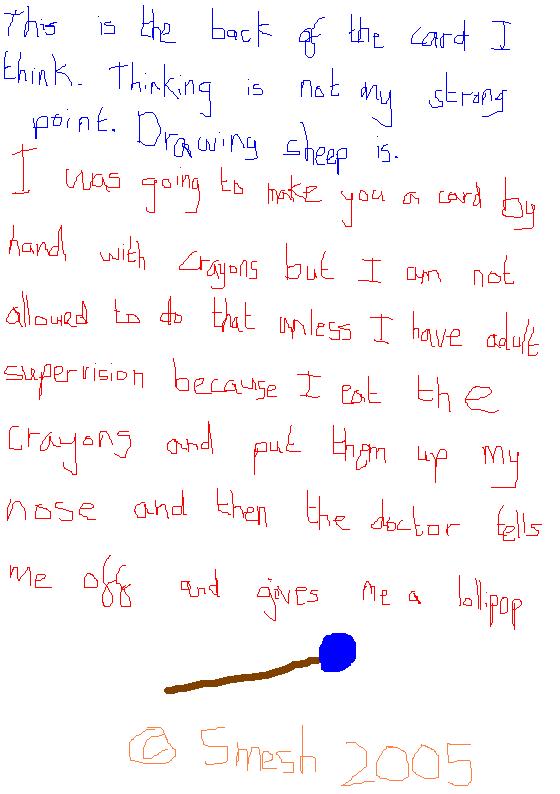 This is the back of the card I
think. Thinking is not my strong
point. Drawing sheep is.
I was going to make you a card by
hand with crayons but I am not
allowed to do that unless I have adult
supervision because I eat the
crayons and put them up my
nose and then the doctor tells
me off and gives me a lollipop
© Smesh 2005